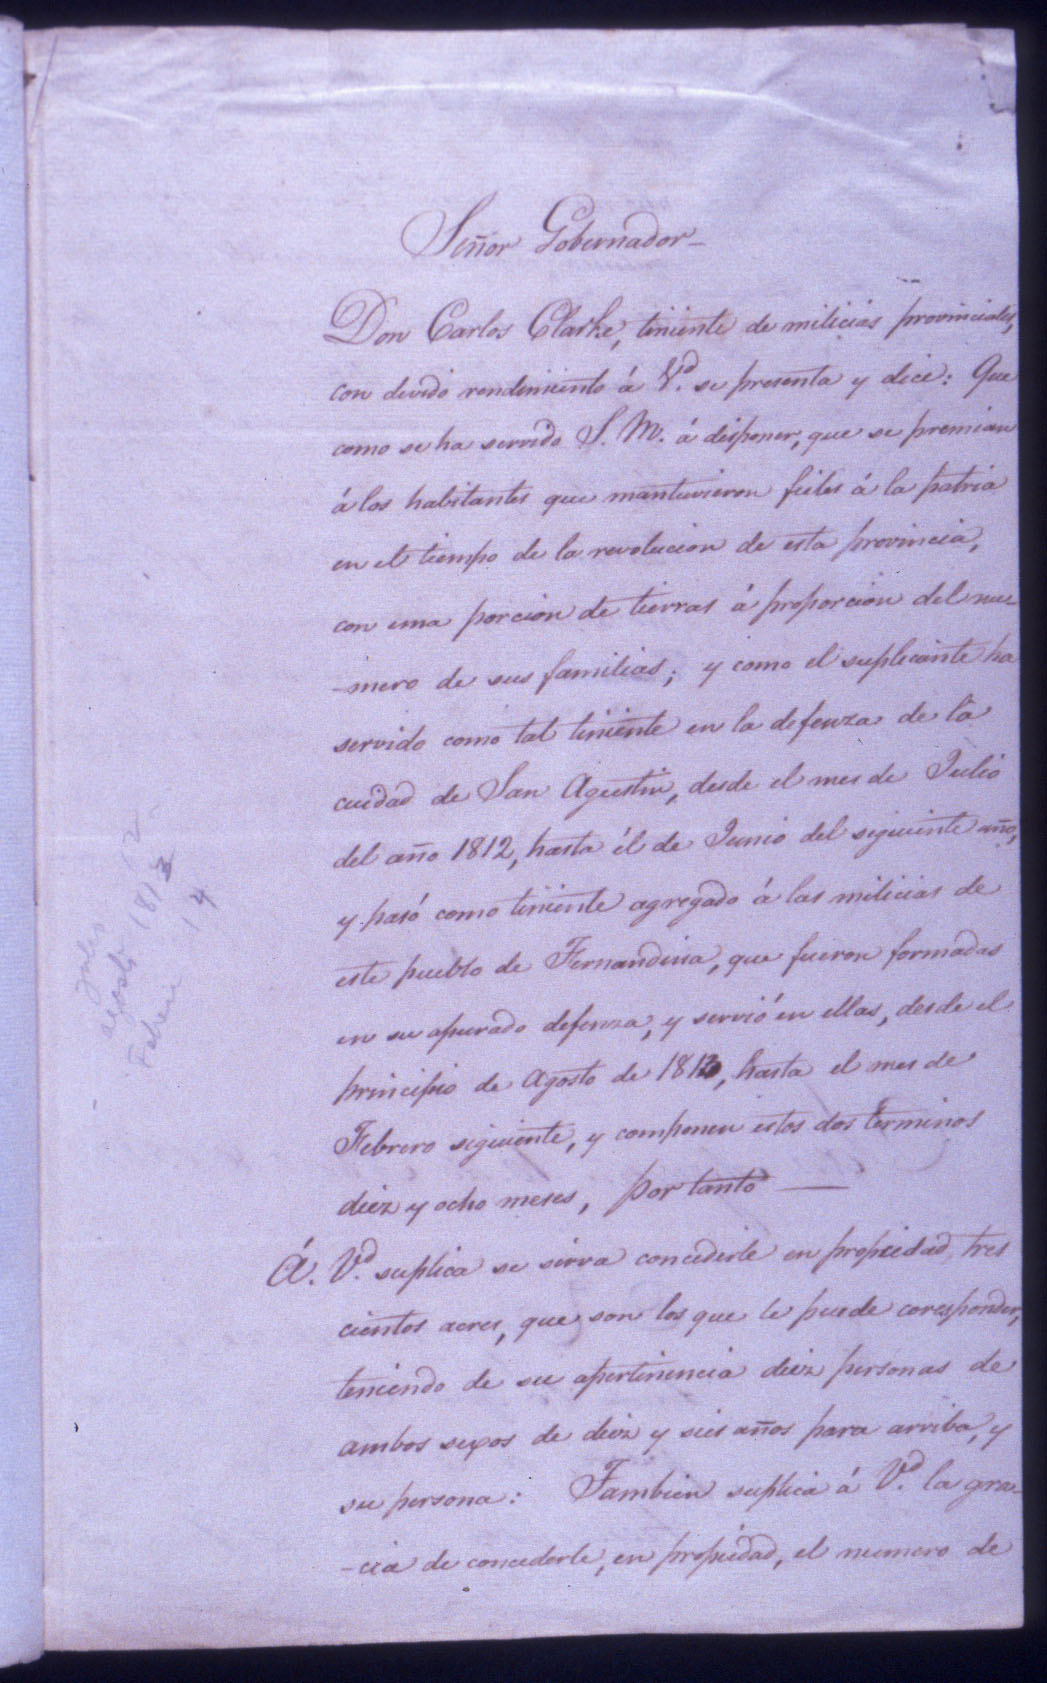 Señor Gobernador—
Don Carlos Clarke, teniente de milicias provinciales,
con devido rendimiento á V.d se presenta y dice: Que
como se ha servido S. M. á disponer, que se premian
á los habitantes que mantuvieron fieles á la patria
en el tiempo de la revolucion de esta provincia,
con una porcion de tierras á proporcion del nu-
-mero de sus familias; y como el suplicante ha
servido como tal teniente en la defenza de la
ciudad de San Agustin, desde el mes de Julio
del año 1812, hasta él de Junio del siguiente año,
y pasó como teniente agregado á las milicias de
este pueblo de Fernandina, que fueron formadas
en su apurado defenza, y servió en ellas, desde el
principio de Agosto de 1813, hasta el mes de
Febrero siguiente, y componen estos dos terminos
diez y ocho meses, por tanto —
Á. V.d suplica se sirva concederle en propiedad, tres
cientos acres, que son los que le puede coresponder,
teniendo de su apertinencia diez personas de
ambos sexos de diez y seis años para arriba, y
su persona: Tambien suplica á V.d la gra-
-cia de concederle, en propiedad, el numero de
12
Julio
agosto 1813
14